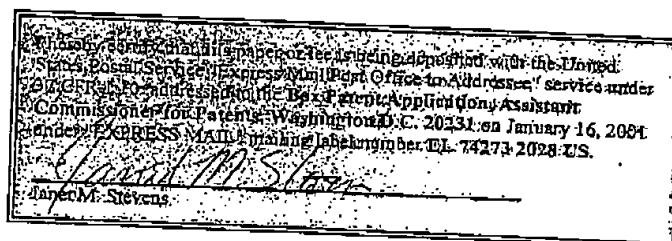 I hereby certify that this paper or fee is being deposited with the United
States Postal Service "Express Mail Post Office to Addressee" service under
37 CFR 1.10 addressed to the Box Patent Application, Assistant
Commissioner for Patents, Washington D.C. 20231 on January 16, 2001
under "EXPRESS MAIL" mailing label number EL 74273 2028 US.
Janet M. Stevens